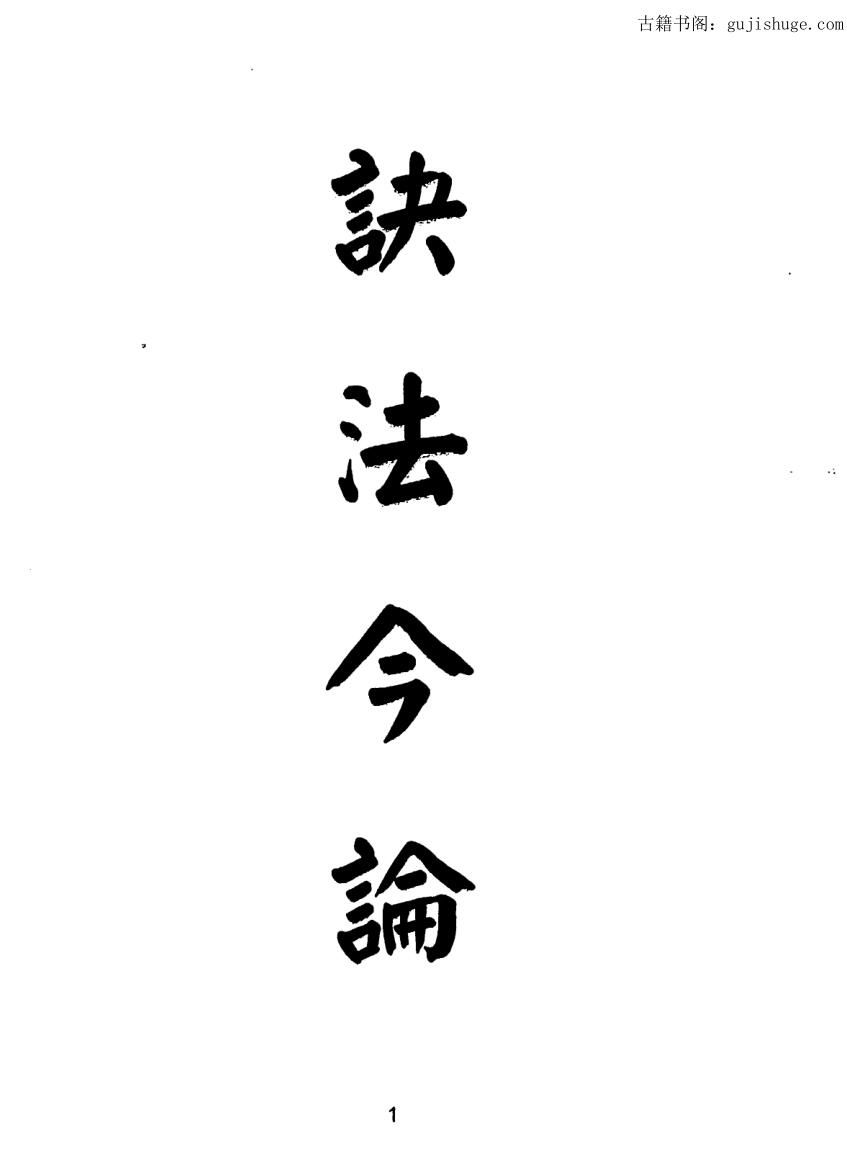 古籍书阁：gujishuge.com
訣法今論
1